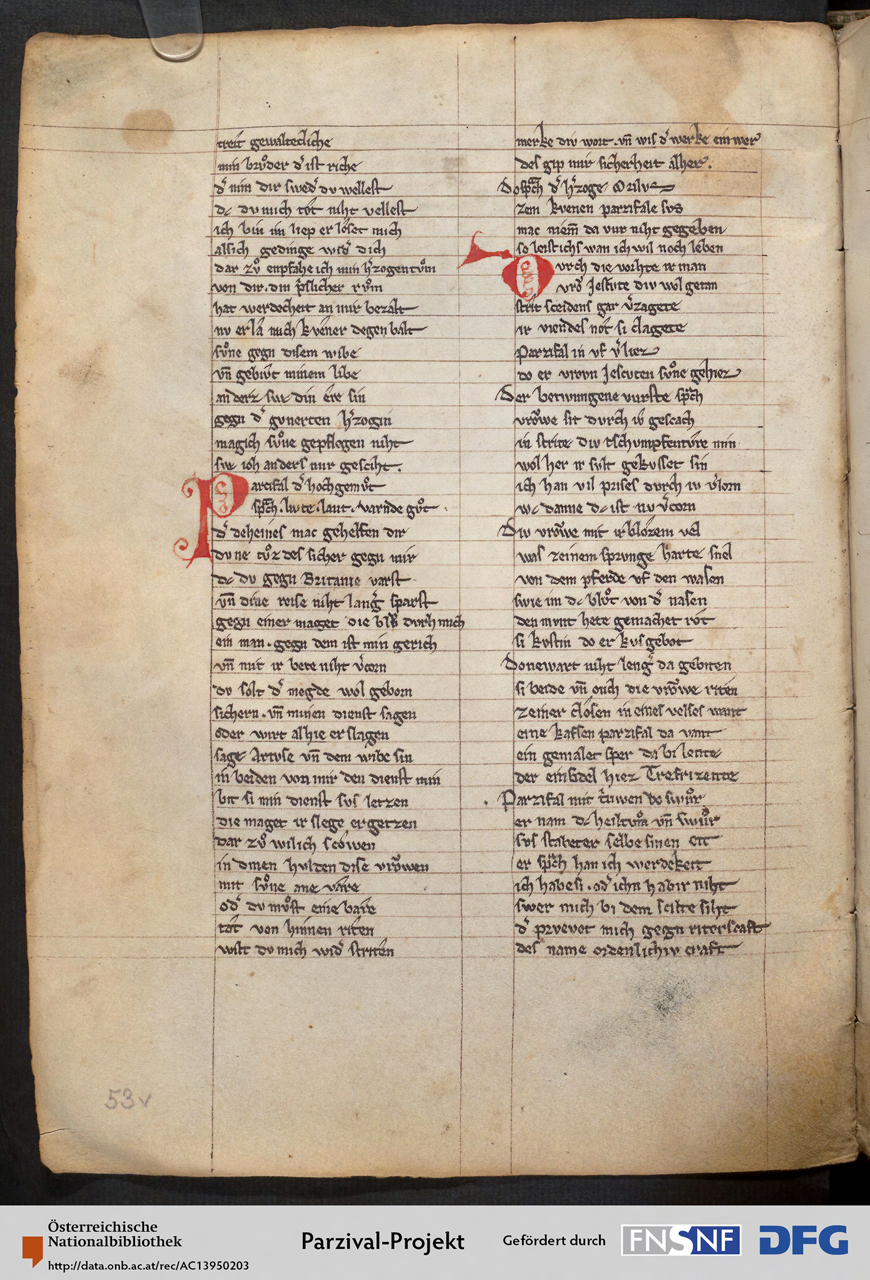 treit gewaltecliche
min brůder d͛ ist riche
d͛ nim dir swed͛ dv wellest
dc dv mich tot niht vellest
ich bin im liep er lo̍set mich
alsich gedinge wid͛ dich
dar zů enpfahe ich min h͛zogentům
von dir. din p͛slicher rům
hat werdecheit an mir bezalt
nv erla mich kv̍ener degen balt
sůne gegn disem wibe
vn̄ gebivt minem libe
anderz swc din ere sin
gegn d͛ gvnerten h͛zogin
magich sůne gepflegen niht
swc ioh anders mir gesciht.
Parcifal d͛ hochgemůt
sp̄ch. lvte. lant. varnde gůt.
d͛ deheines mac gehelfen dir
dvne tůz des sicher gegn mir
dc dv gegn Britanie varst
vn̄ dine reise niht lang͛ sparst
gegn einer maget die blv̊ dvrh mich
ein man. gegn dem ist min gerich
vn̄ mit ir bete niht v͛corn
dv solt d͛ megde wol geborn
sichern. vn̄ minen dienst sagen
oder wirt alhie erslagen
sage Artvse vn̄ dem wibe sin
in beiden von mir den dienst min
bit si min dienst svs letzen
die maget ir slege ergetzen
Dar zů wil ich scowen
in dinen hvlden dise vrŏwen
mit sůne ane vare
od͛ dv mv̊st eine bare
tot von hinnen riten
wilt dv mich wid͛ striten
merke div wort. vn̄ wis d͛ werke ein wer
des gip mir sicherheit alher.
Do sp̄ch d͛ h͛zoge Orilvs
zem kvenen parzifale svs
mac niem̄ da vur niht gegeben
so leist ichs wan ich wil noch leben
Dvrch die vorhte ir man
vrŏ Jescute div wol getan
strit sceidens gar v͛zagete
ir viendes not si clagete
Parzifal in vf v͛liez
do er vrovn Jescuten sůne gehiez
Der betwungene vurste sp̄ch
vrŏwe sit dvrch iv gescach
in strite div tschumpfentv̍re min
wol her ir svlt gekvsset sin
ich han vil prises dvrch iv v͛lorn
wc danne dc ist nv v͛corn
Div vrŏwe mit ir blozem vel
was zeinem sprvnge harte snel
von dem pferde vf den wasen
swie im dc blv̊t von d͛ nasen
den mvnt hete gemachet rot
si kvstin do er kvs gebot
Donewart niht leng͛ da gebiten
si beide vn̄ ouch die vrŏwe riten
zeiner closen in eines velses want
eine kafsen parzifal da vant
ein gemalet sper da bi lente
der einsidel hiez Trefrizente
Parzifal mit tr͛uwen do swůr
er nam dc heiltům vn̄ swůr
svs stabeter selbe sinen eit
er sp̄ch han ich werdekeit
ich habe si. od͛ ichn habir niht
swer mich bi dem scilte siht
d͛ prvevet mich gegn riterscaft
des name ordenlichiv craft
53v
Österreichische
Nationalbibliothek
http://data.onb.ac.at/rec/AC13950203
Parzival-Projekt
Gefördert durch
FNSNF
DFG